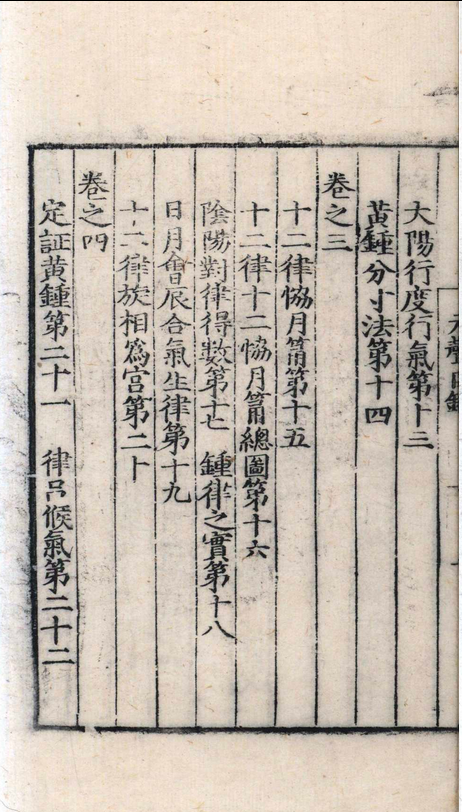 大陽行度行氣第十三
黃鍾分寸法第十四
卷之三
十二律恊月筩第十五
十二律十二恊月筩總圖第十六
陰陽對律得數第十七　鍾律之實第十八
日月會辰合氣生律第十九
十二律旋相爲宫第二十
卷之四
定証黃鍾第二十一　律吕候氣第二十二